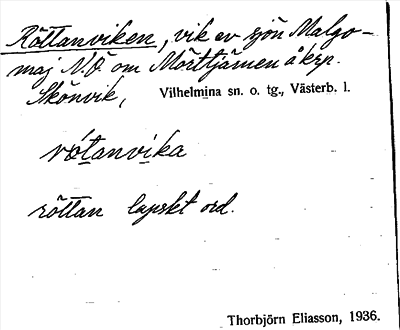 Röttanviken, vik av sjön Malgo-
maj N.Ö. om Mörttjärnen å krp.
Skönvik, Vilhelmina sn. o. tg., Västerb. l.
rö́tanvika
röttan lapskt ord.
Thorbjörn Eliasson, 1936.